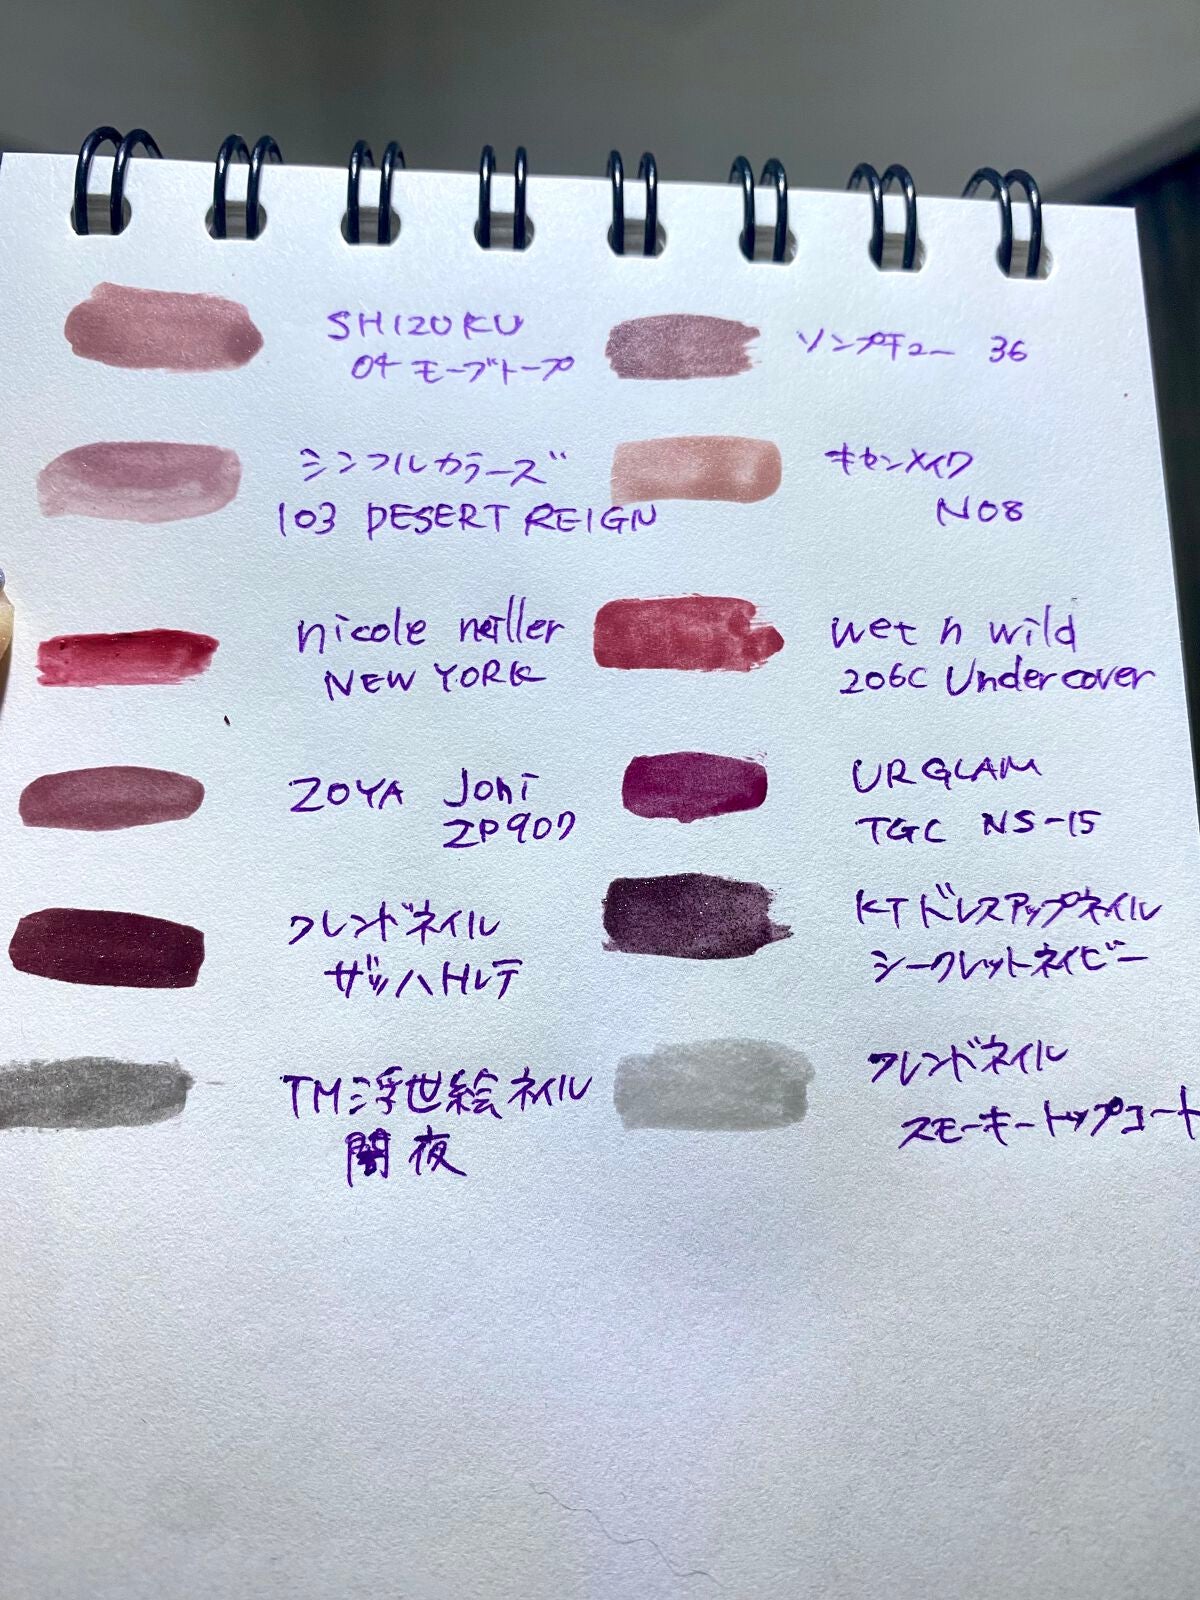 SHIZUKU
04 モーブトープ
ソンプチュー 36
シンフルカラーズ
103 DESERT REIGN
キセンメイク
N08
nicole meiller
NEW YORK
wet n wild
206C Undercover
ZOYA Joni
ZP907
URGLAM
TGC NS-15
フレンドネイル
ザッハトルテ
KTドレスアップネイル
シークレットネイビー
TM浮世絵ネイル
闇夜
フレンドネイル
スモーキートップコート